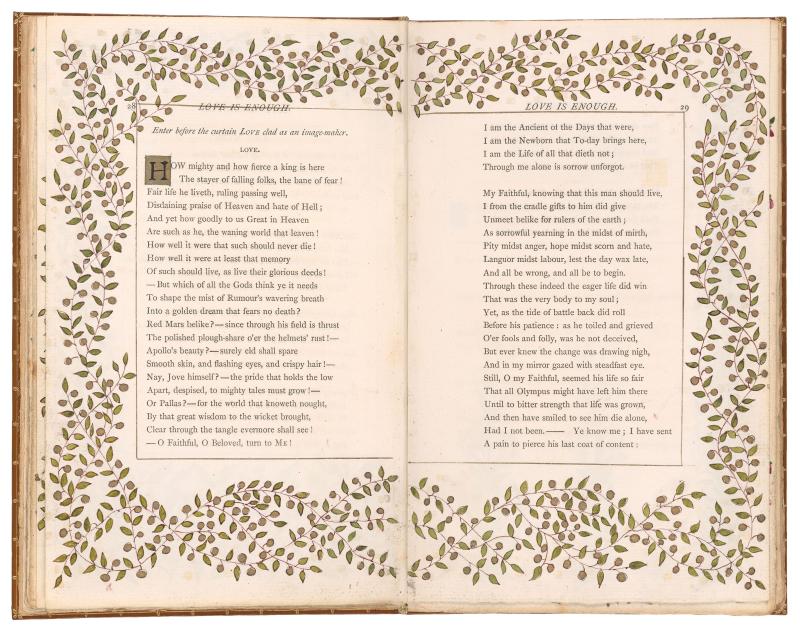 28 LOVE IS ENOUGH.
Enter before the curtain LOVE clad as an image-maker.
LOVE.
HOW mighty and how fierce a king is here
The stayer of falling folks, the bane of fear!
Fair life he liveth, ruling passing well,
Disdaining praise of Heaven and hate of Hell;
And yet how goodly to us Great in Heaven
Are such as he, the waning world that leaven!
How well it were that such should never die!
How well it were at least that memory
Of such should live, as live their glorious deeds!
—But which of all the Gods think ye it needs
To shape the mist of Rumour's wavering breath
Into a golden dream that fears no death?
Red Mars belike?—since through his field is thrust
The polished plough-share o'er the helmets' rust!—
Apollo's beauty?—surely eld shall spare
Smooth skin, and flashing eyes, and crispy hair!—
Nay, Jove himself?—the pride that holds the low
Apart, despised, to mighty tales must grow!—
Or Pallas?—for the world that knoweth nought,
By that great wisdom to the wicket brought,
Clear through the tangle evermore shall see!
—O Faithful, O Beloved, turn to ME!
LOVE IS ENOUGH. 29
I am the Ancient of the Days that were,
I am the Newborn that To-day brings here,
I am the Life of all that dieth not;
Through me alone is sorrow unforgot.
My Faithful, knowing that this man should live,
I from the cradle gifts to him did give
Unmeet belike for rulers of the earth;
As sorrowful yearning in the midst of mirth,
Pity midst anger, hope midst scorn and hate,
Languor midst labour, lest the day wax late,
And all be wrong, and all be to begin.
Through these indeed the eager life did win
That was the very body to my soul;
Yet, as the tide of battle back did roll
Before his patience: as he toiled and grieved
O'er fools and folly, was he not deceived,
But ever knew the change was drawing nigh,
And in my mirror gazed with steadfast eye.
Still, O my Faithful, seemed his life so fair
That all Olympus might have left him there
Until to bitter strength that life was grown,
And then have smiled to see him die alone,
Had I not been.—— Ye know me; I have sent
A pain to pierce his last coat of content: